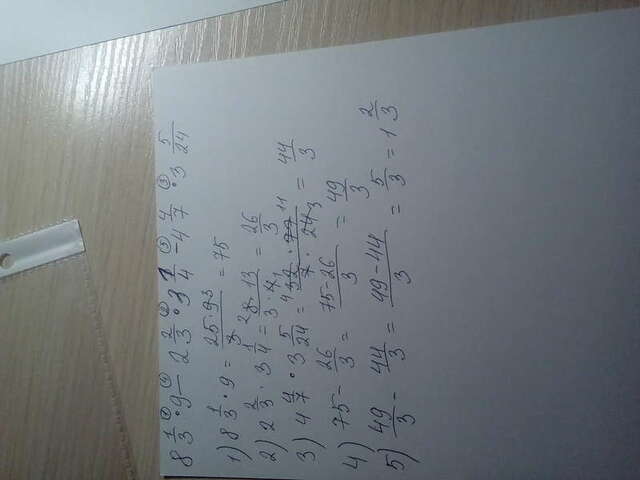 8 1/3 ① · 9 ④ − 2 2/3 ② · 3 1/4 ⑤ − 4 4/7 ③ · 3 5/24
1) 8 1/3 · 9 = 25·9 3/3 = 75
2) 2 2/3 · 3 1/4 = 2 8·13/3·4 1 = 26/3
3) 4 4/7 · 3 5/24 = 4 32·77 11/7·24 3 = 44/3
4) 75 − 26/3 = 75−26/3 = 49/3
5) 49/3 − 44/3 = 49−44/3 = 5/3 = 1 2/3